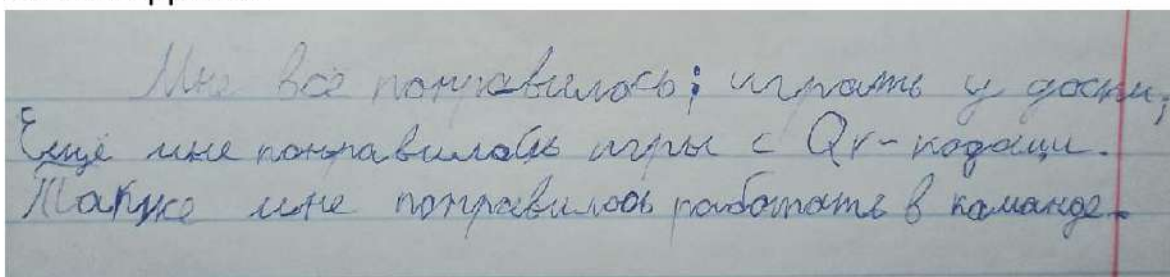 Мне всё понравилось; играть у доски,
Ещё мне понравилось игры с Qr-кодами.
Также мне понравилось работать в команде.